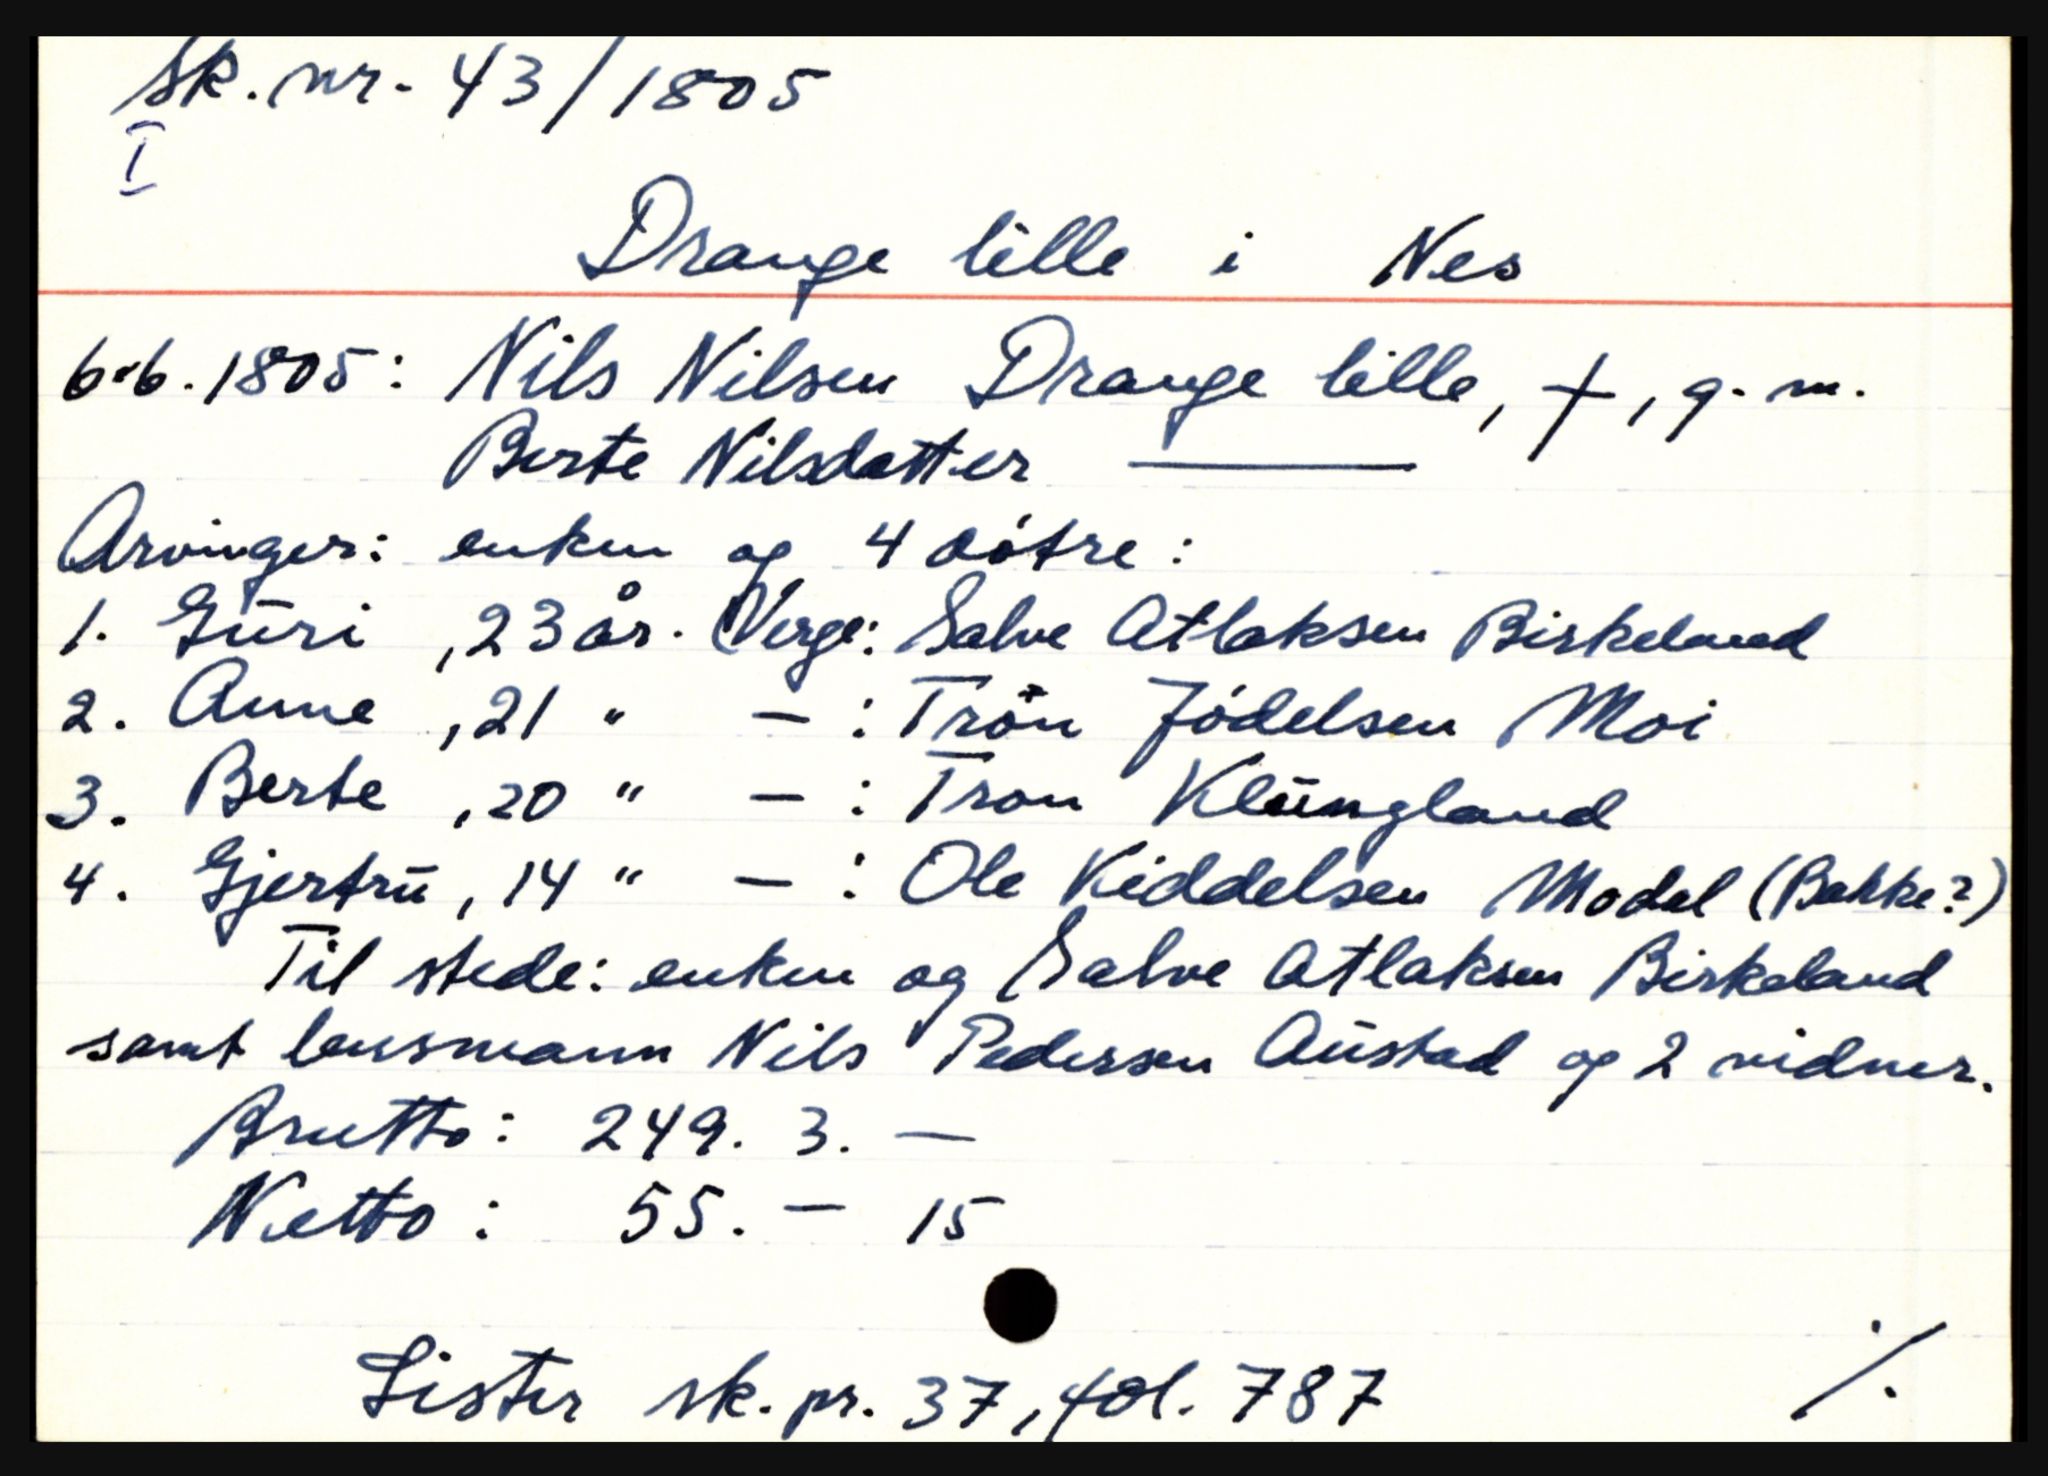 Sk. nr. 43/1805
I
Drange lille i Nes
6.6.1805: Nils Nilsen Drange lille, †, g. m.
Berte Nilsdatter ———
Arvinger: enken og 4 døtre:
1. Guri , 23 år. Verge: Salve Atlaksen Birkeland
2. Anne , 21 " — : Tron Jødelsen Moi
3. Berte , 20 " — : Tron Klungland
4. Gjertru , 14 " — : Ole Kiddelsen Modal (Bakke?)
Til stede: enken og Salve Atlaksen Birkeland
samt lensmann Nils Pedersen Austad og 2 vidner.
Brutto: 249. 3. —
Netto: 55. — 15
Lister sk. pr. 37, fol. 787
./.